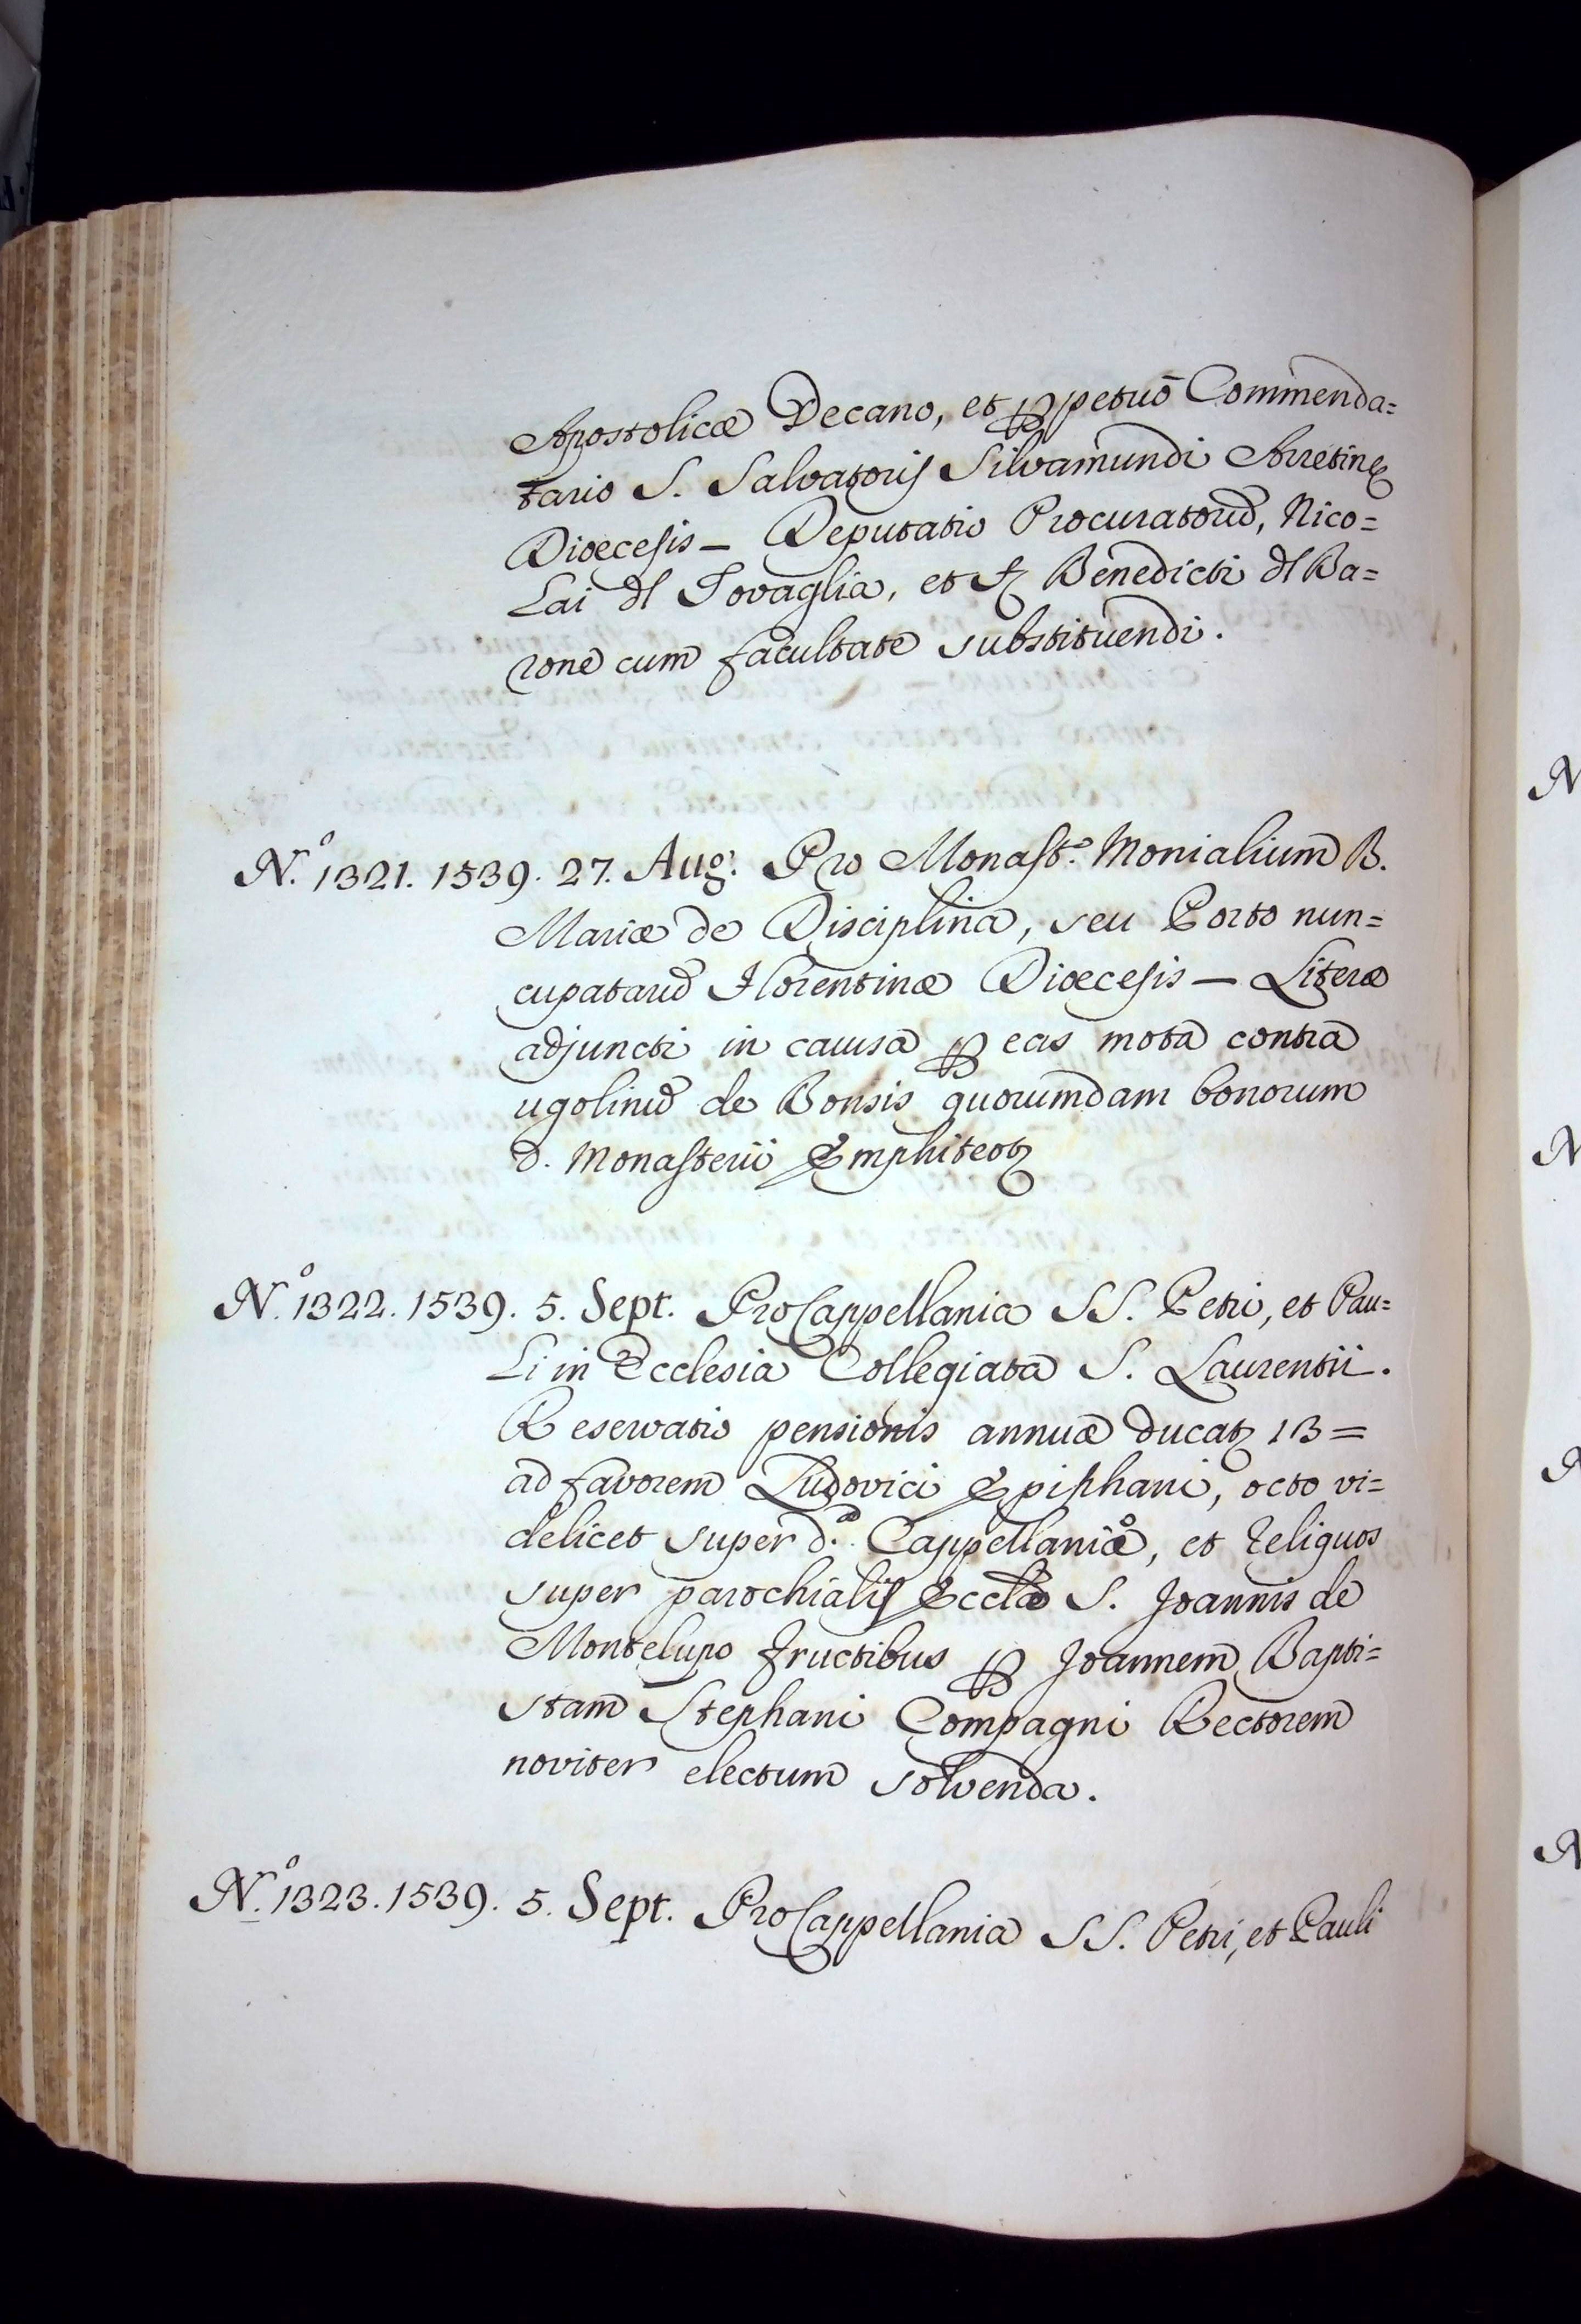 Apostolicæ Decano, et ꝑpetuō Commenda=
tario S. Salvatoris Silvamundi Arretinę
Diœcesis — Deputatio Procuratorū, Nico=
lai dl Tovaglia, et Benedicti dl Ba=
rone cum facultate substituendi.
N.º 1321. 1539. 27. Aug. Pro Monast.º Monialium B.
Mariæ de Disciplina, seu Porto nun=
cupatarū Florentinæ Diœcesis — Literæ
adjuncti in causa ꝑ eas mota contra
ugolinū de Bonsis quorumdam bonorum
d. Monasterii Emphiteotȝ
N.º 1322. 1539. 5. Sept. Pro Cappellania SS. Petri, et Pau=
li in Ecclesia Collegiata S. Laurentii.
Reservatio pensionis annuæ ducatȝ 13 =
ad favorem Ludovici Epiphani, octo vi=
delicet super d.ª Cappellaniæ, et reliquos
super parochialis Ecclæ S. Joannis de
Montelupo fructibus ꝑ Joannem Bapti=
stam Stephani Compagni Rectorem
noviter electum solvenda.
N.º 1323. 1539. 5. Sept. Pro Cappellania SS. Petri, et Pauli